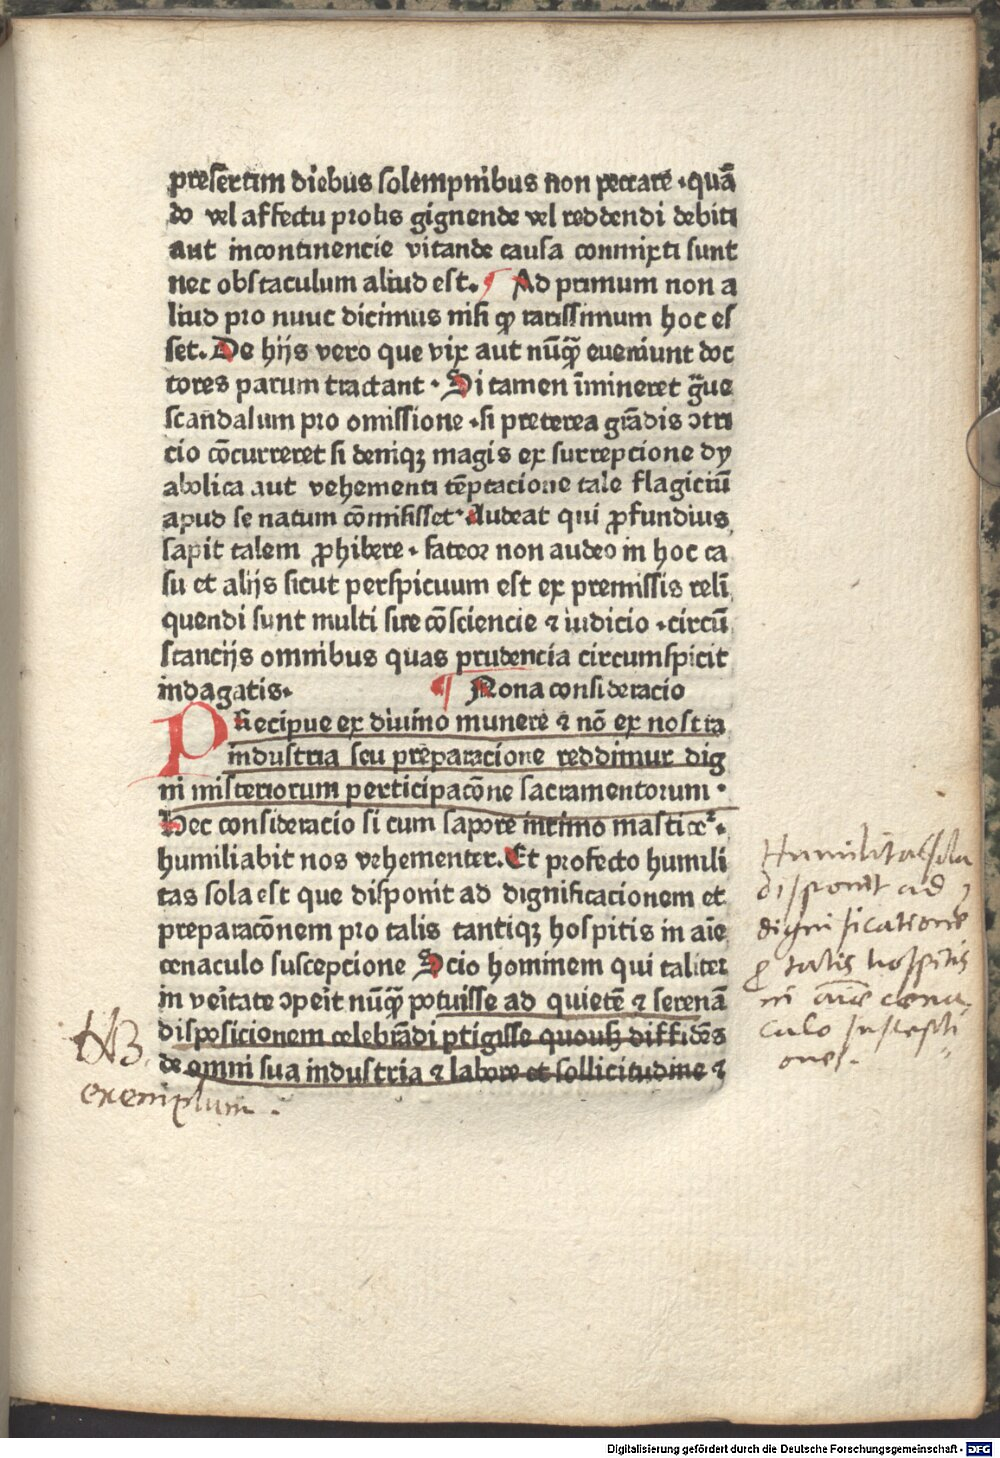 presertim diebus solempnibus non peccare · quā
do vel affectu prolis gignende vel reddendi debiti
aut incontinencie vitande causa conmixti sunt
nec obstaculum aliud est. ¶ Ad primum non a
liud pro nunc dicimus nisi ꝙ rarissimum hoc es
set. De hijs vero que vix aut nūꝙ̄ eveniunt doc
tores parum tractant · Si tamen īmineret g̃ue
scandalum pro omissione · si preterea grādis ↄtri
cio cōcurreret si deniqꝫ magis ex surrepcione dy
abolica aut vehementi tēptacione tale flagiciū
apud se natum cōmisisset · Audeat qui ꝓfundius
sapit talem ꝓhibere · fateor non audeo in hoc ca
su et alijs sicut perspicuum est ex premissis reli
quendi sunt multi sue cōsciencie ⁊ iudicio · circū
stancijs omnibus quas prudencia circumspicit
indagatis. ¶ Nona consideracio
PRecipue ex divino munere ⁊ nō ex nostra
industria seu preparacione reddimur dig
ni misteriorum perticipacōne sacramentorum ·
Hec consideracio si cum sapore intimo masticet᷑ ·
humiliabit nos vehementer. Et profecto humili
tas sola est que disponit ad dignificacionem et
preparacōnem pro talis tantiqꝫ hospitis in aīe
cenaculo suscepcione Scio hominem qui taliter
in veitate ↄpeit nūꝙ̄ potuisse ad quietē ⁊ serenā
disposicionem celebrādi ptigisse quousꝫ diffidēs
de omni sua industria ⁊ labore et sollicitudine ⁊
Humilitas sola
disponit ad
dignificationē
ꝓ talis hospitis
in aīe cena
culo suscepti
one.
NB.
exemplum.
Digitalisierung gefördert durch die Deutsche Forschungsgemeinschaft - DFG